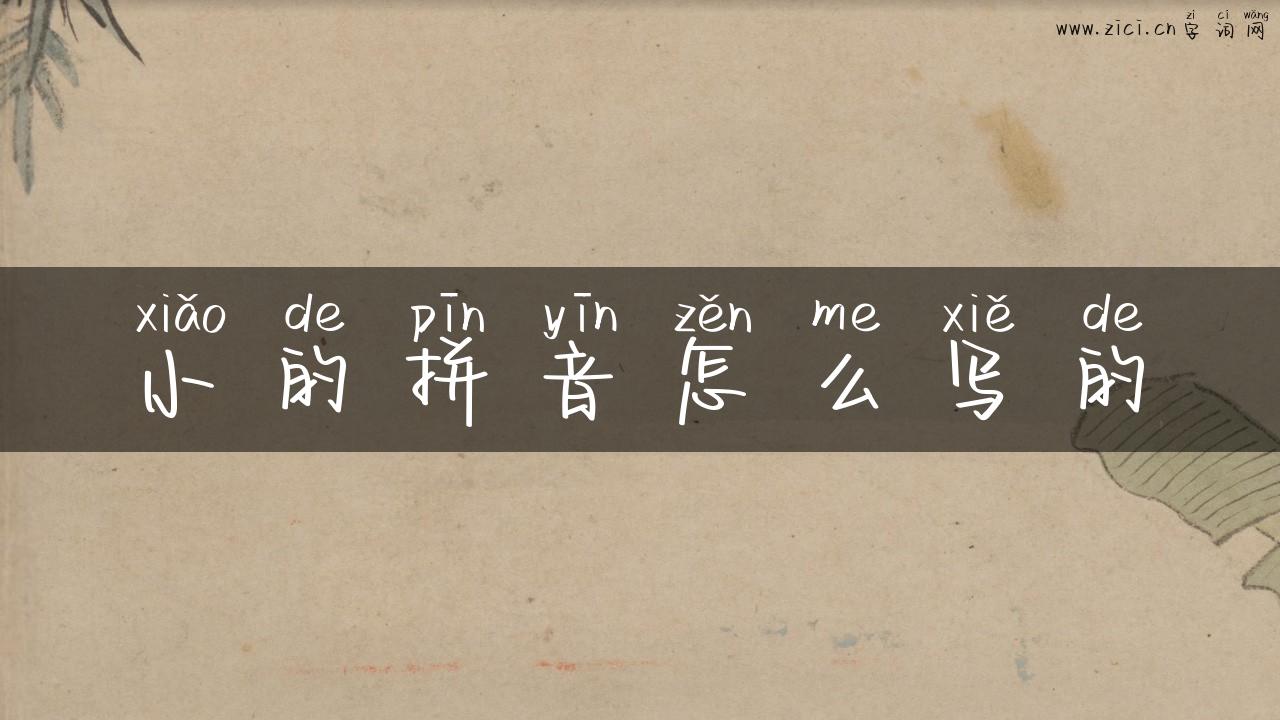 zì cí wǎng
www.zici.cn 字 词 网
xiǎo de pīn yīn zěn me xiě de
小 的 拼 音 怎 么 写 的